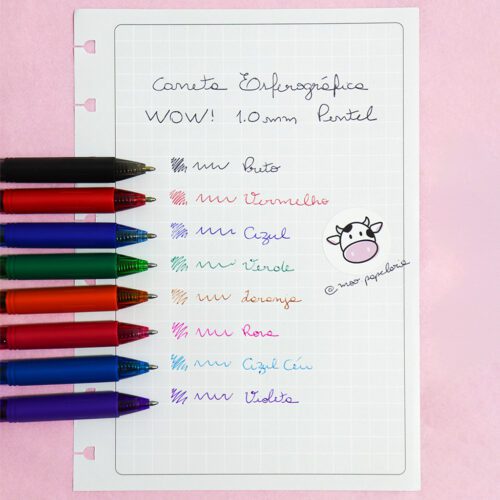 Caneta Esferográfica
WOW! 1.0mm Pentel
Preto
Vermelho
Azul
Verde
Laranja
Rosa
Azul Céu
Violeta
@moo papelaria